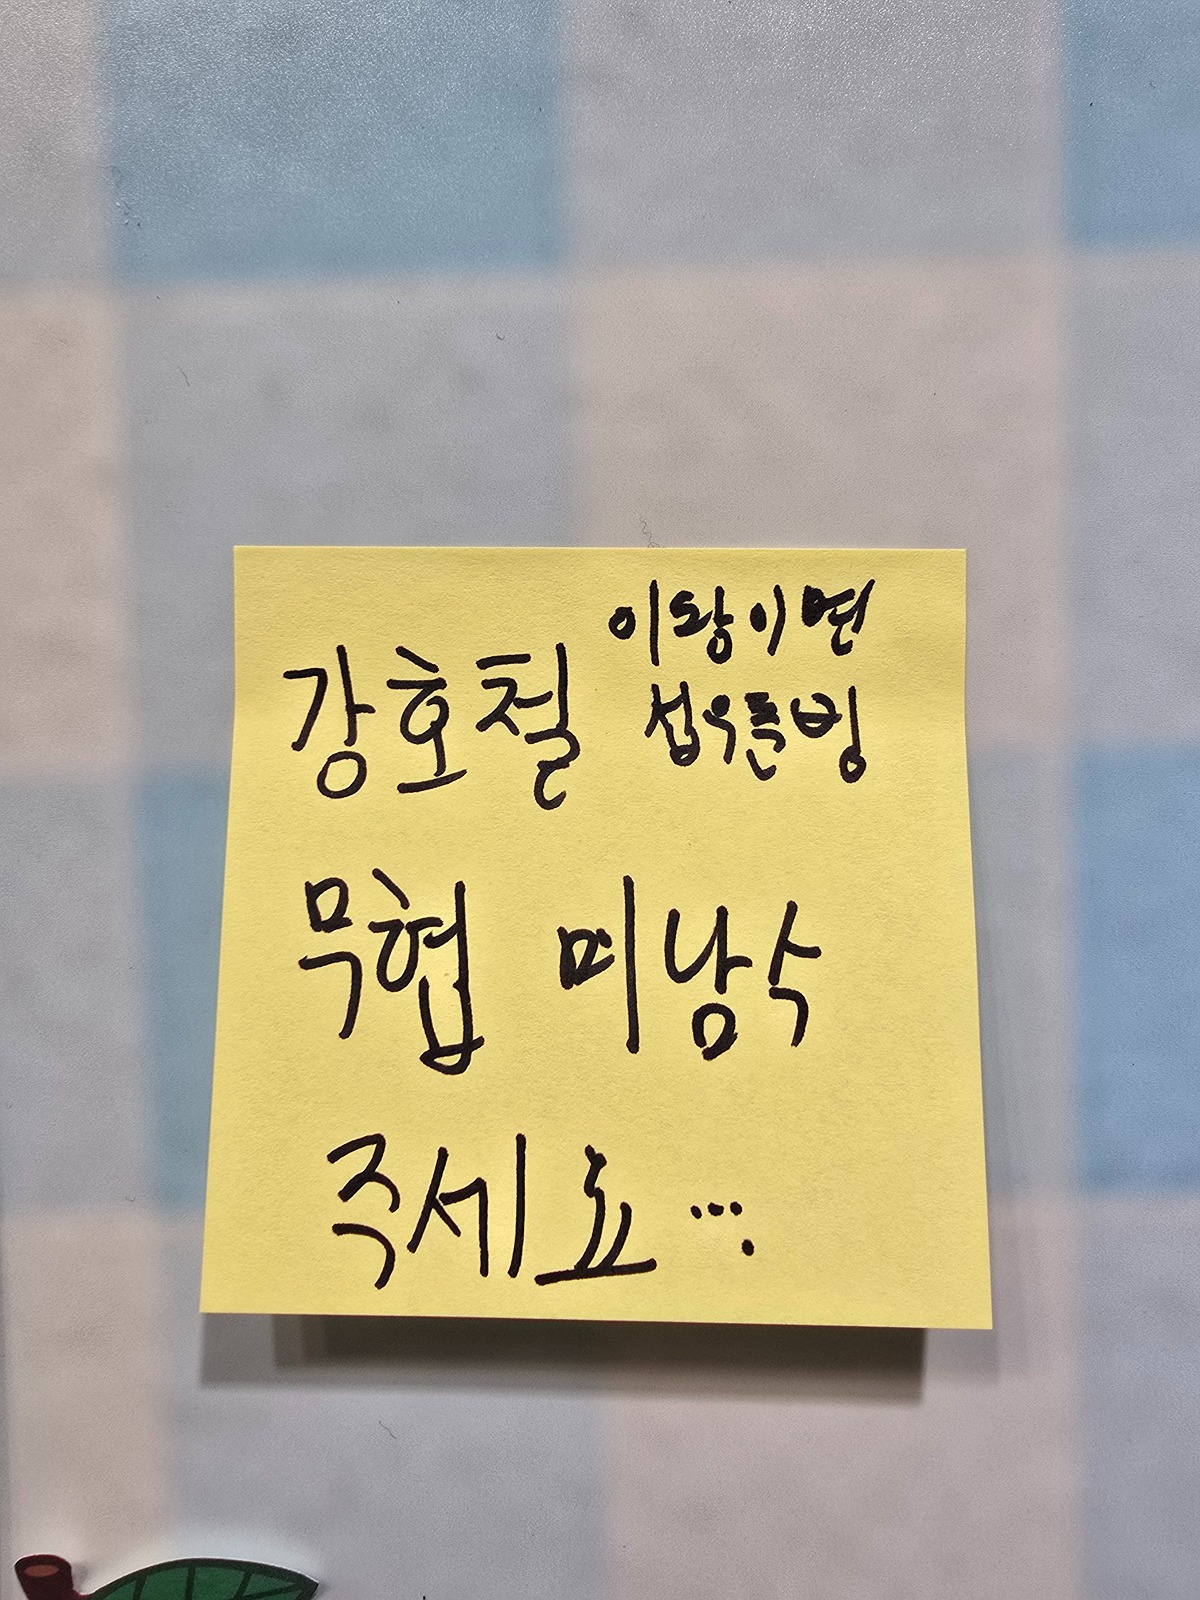 이왕이면
섭우튼빙
강호철
무협 미남수
주세요....